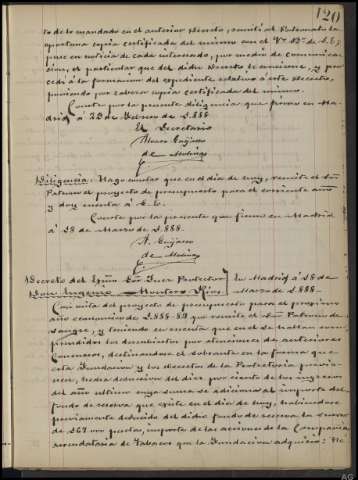 120
to de lo mandado en el anterior Decreto, remití al Patronato la
oportuna copia certificada del mismo con el Vº Bº de S. E;
puse en noticia de cada interesado, por medio de comunica-
ción, el particular que del dicho Decreto le concierne, y pro-
cedí á la formacion del espediente relativo á este Decreto,
poniendo por cabeza copia certificada del mismo.
Conste por la presente diligencia que firmo en Ma-
drid á 28 de Febrero de 1.888.
El Secretario
de Molina
Diligencia: Hago constar que en el dia de hoy, remite el Sr.
Patrono el proyecto de presupuesto para el corriente año
y doy cuenta á S. E.
Conste por la presente que firmo en Madrid
á 28 de Marzo de 1.888.
de Molina
Decreto del Excmo Sor Juez Protector
En Madrid á 28 de
Don Eugenio Montero Rios
Marzo de 1.888.
Con vista del proyecto de presupuesto para el proximo
año economico de 1.888-89 que remite el Sr. Patrono de
Sangre, y teniendo en cuenta que en él se hallan com-
prendidos los descubiertos por atenciones de anteriores
el sobrante en la forma que
esta Fundacion y los decretos de la Protectoria previe-
nen, hecha deduccion del diez por ciento de los ingresos
del año ultimo cuya suma se adiciona al importe del
fondo de reserva que existe en el dia de hoy, habiendose
previamente deducido del dicho fondo de reserva la suma
de pesetas, importe de las acciones de la Compañia
arrendataria de Tabacos que la Fundacion adquirió:
AG